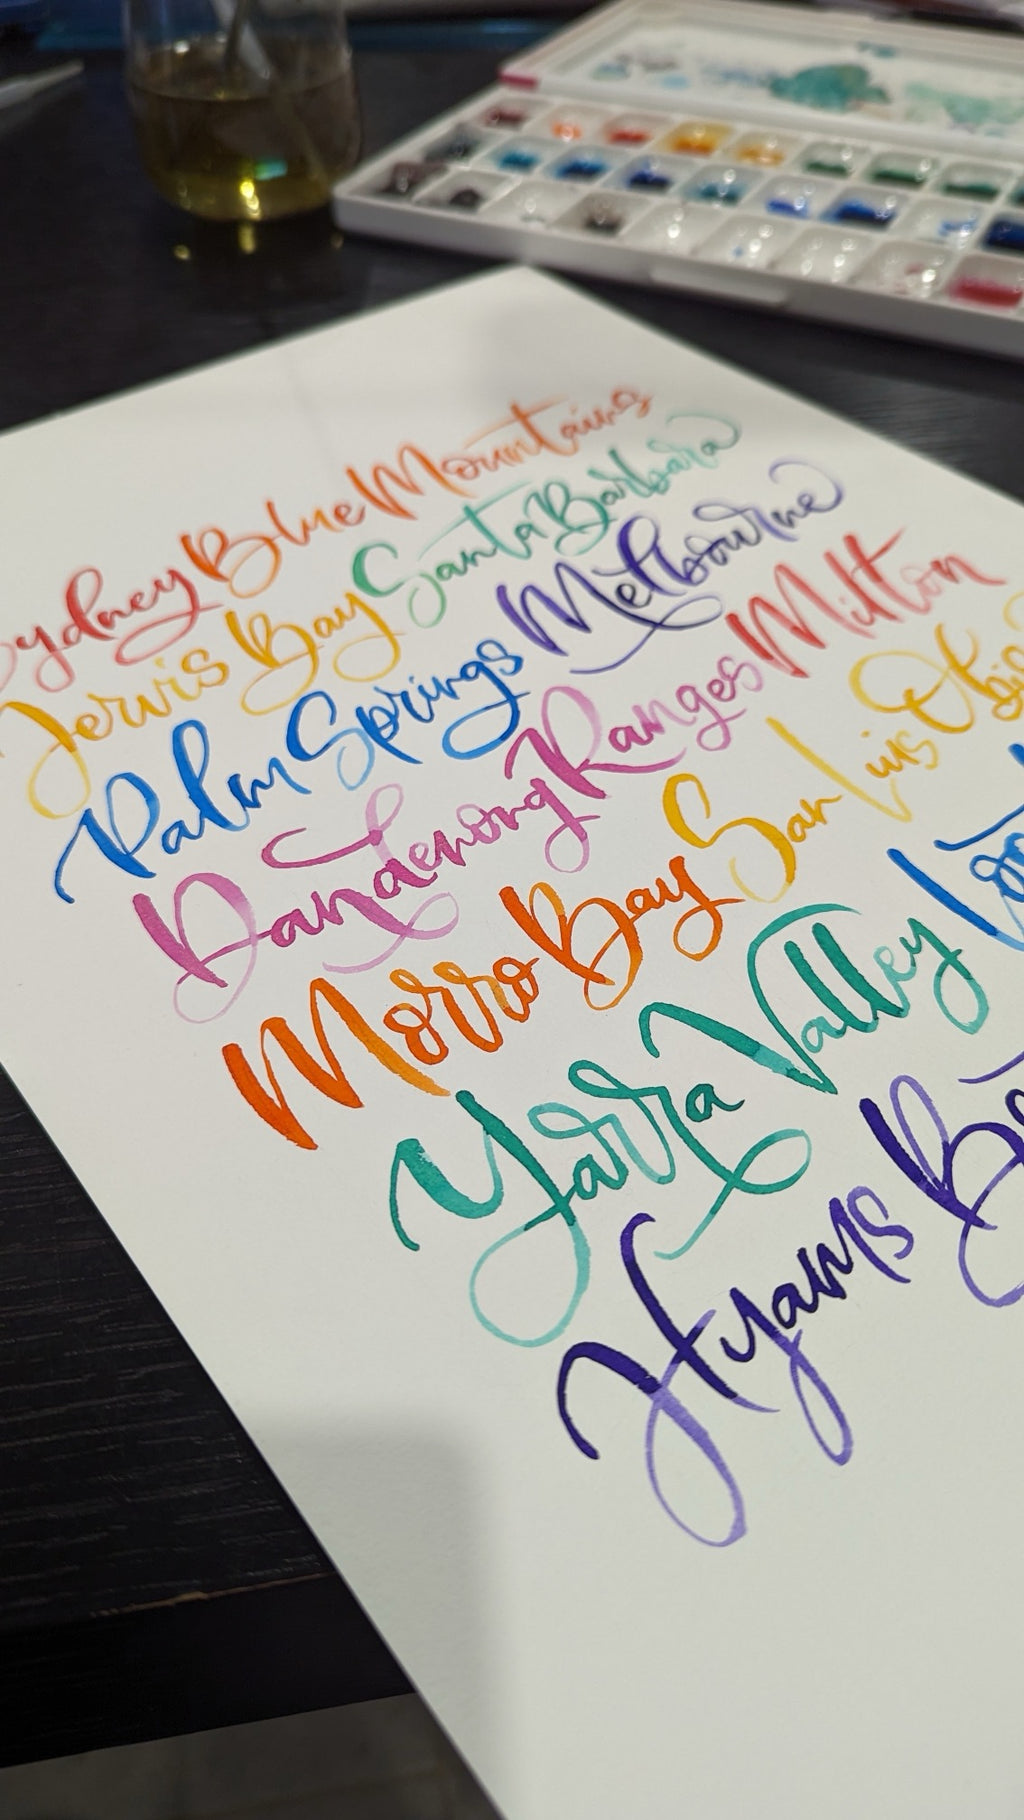 Sydney Blue Mountains
Jervis Bay Santa Barbara
Palm Springs Melbourne
Dandenong Ranges Milton
Morro Bay San Luis Obis
Yarra Valley
Hyams